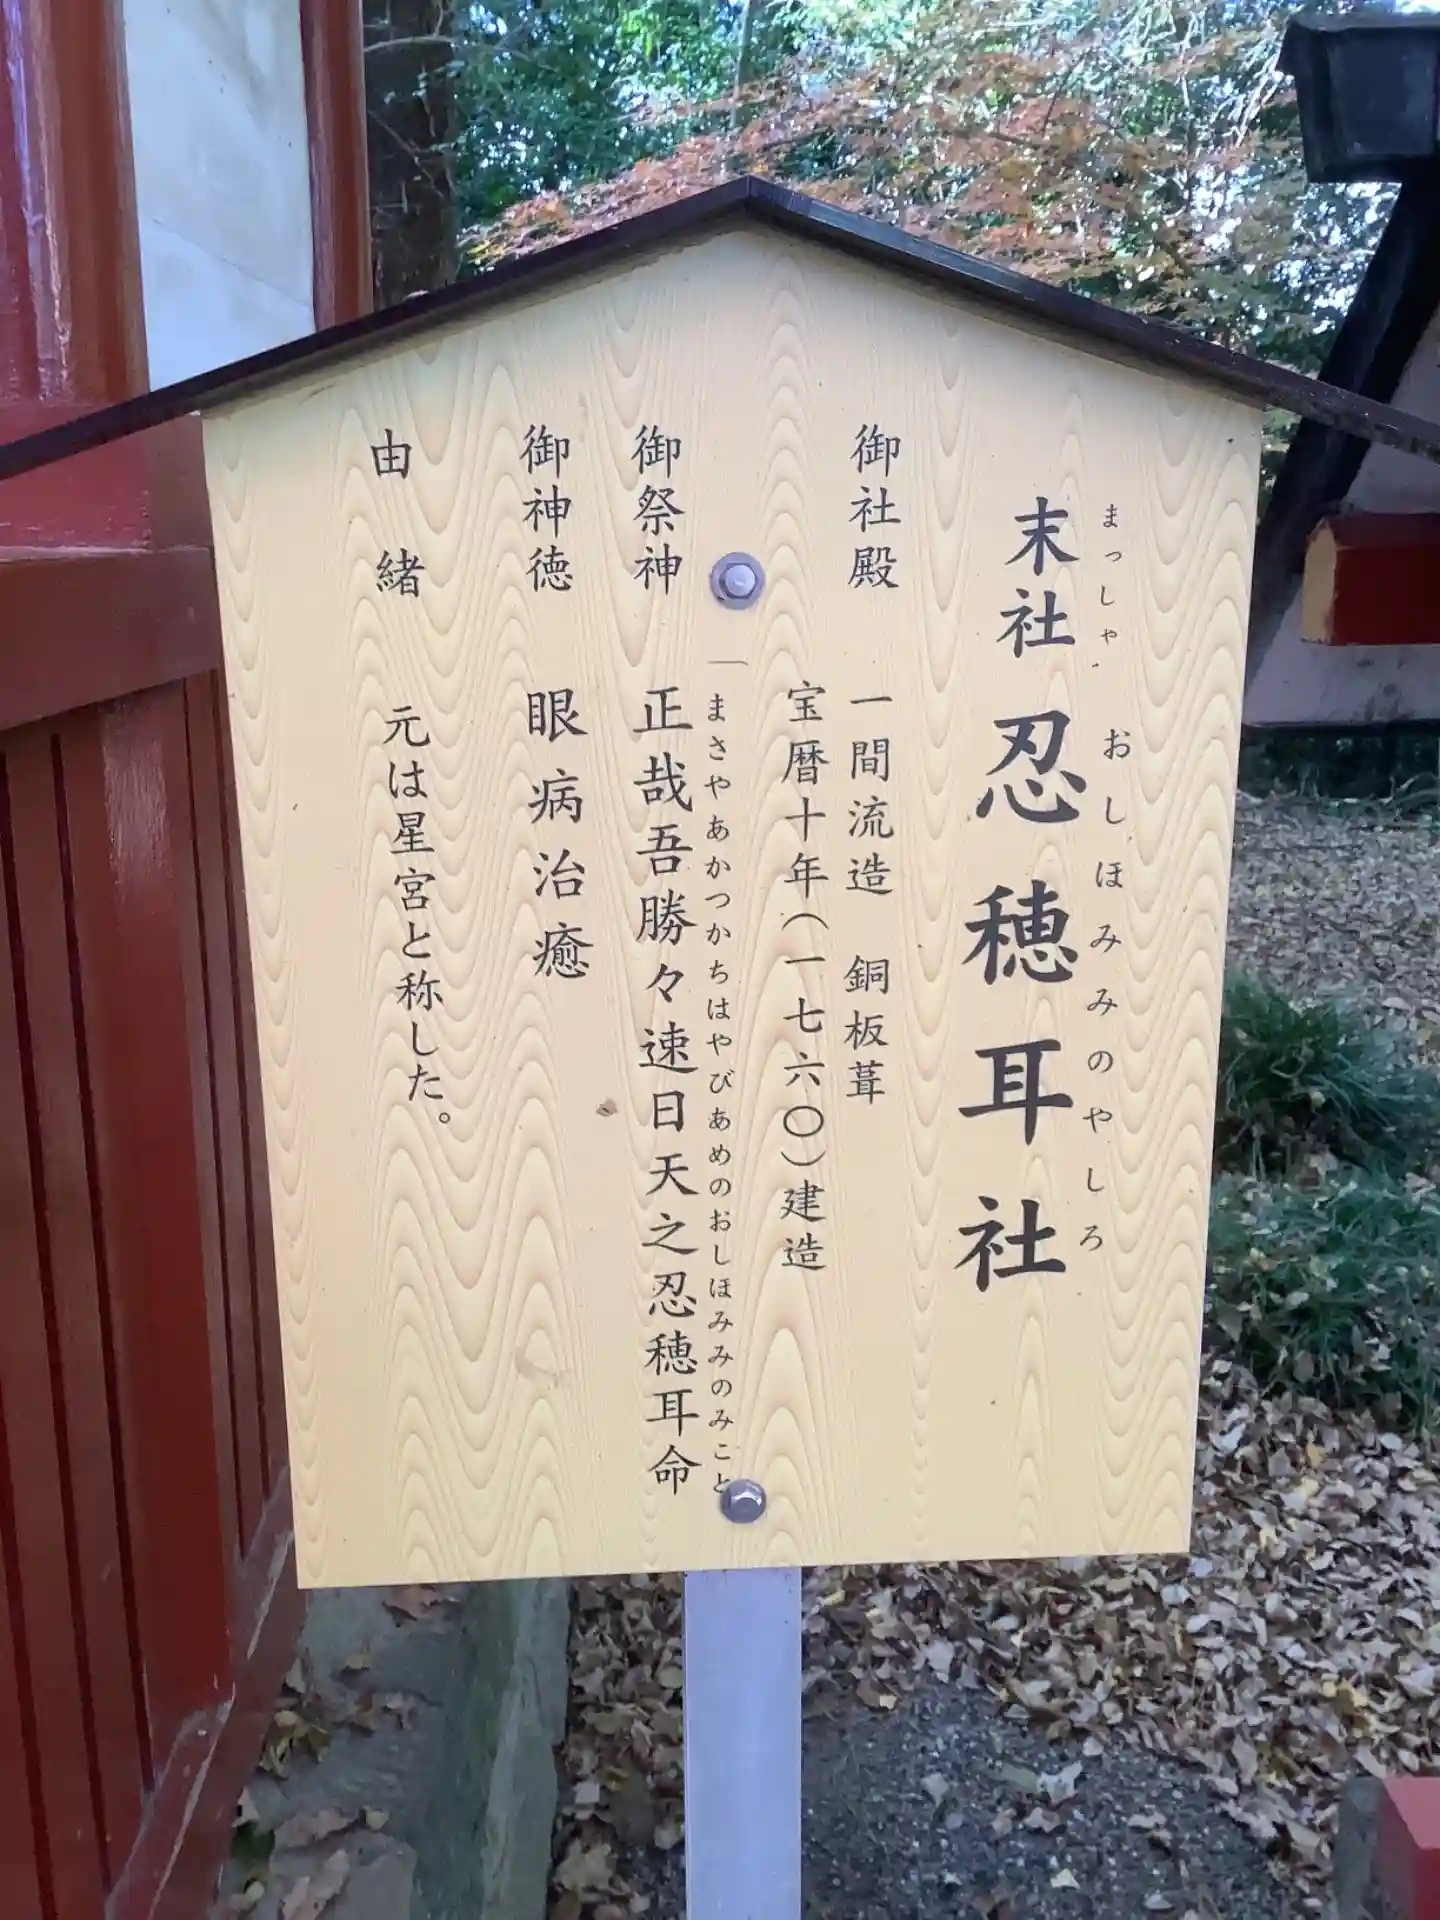 まっしゃ おしほみみのやしろ
末社 忍穂耳社
御社殿 一間流造 銅板葺
宝暦十年(一七六〇)建造
まさやあかつかちはやびあめのおしほみみのみこと
御祭神 正哉吾勝々速日天之忍穂耳命
御神徳 眼病治癒
由緒 元は星宮と称した。